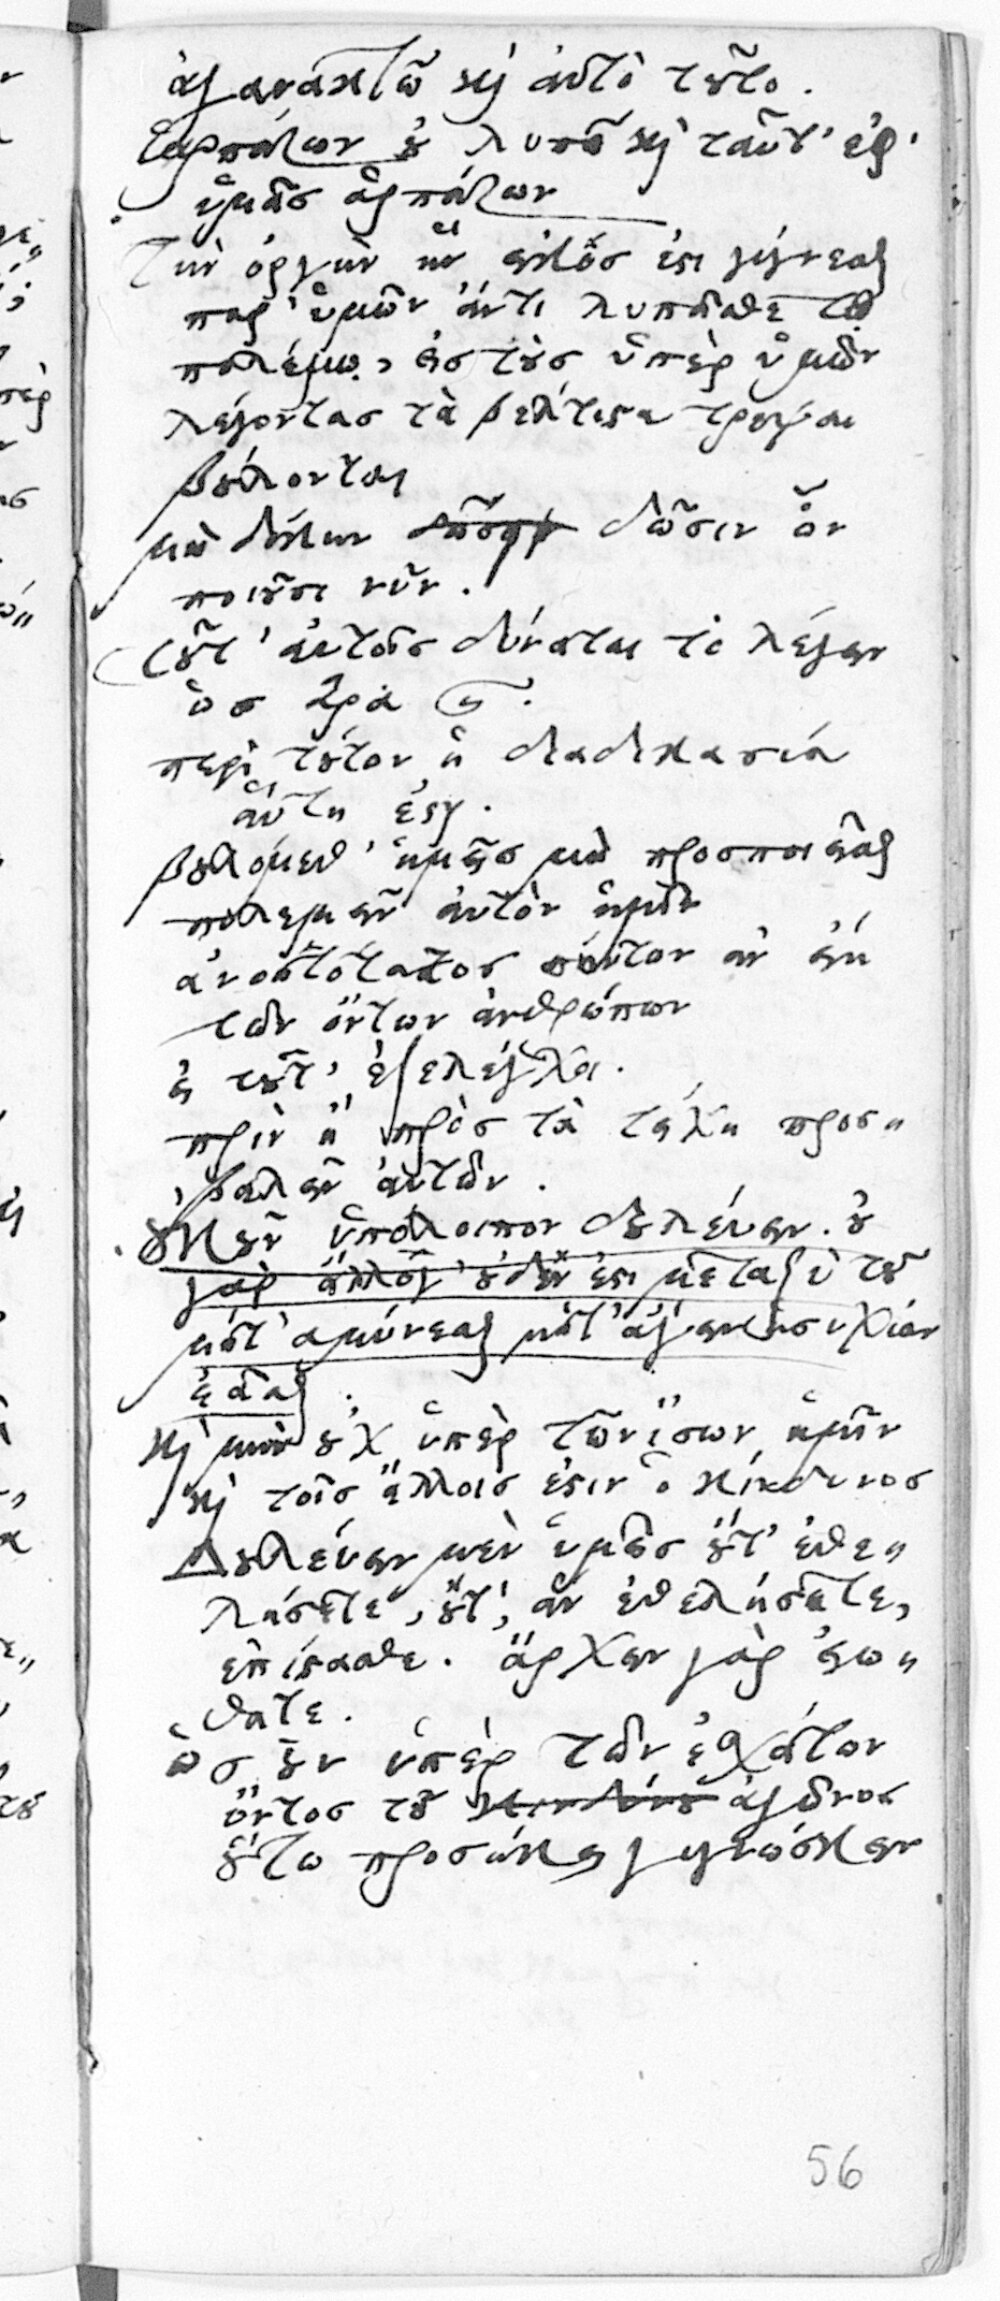 ἀγανακτῶ καὶ αὐτὸ τοῦτο.
ἁρπάζων οὐ λυπεῖ καὶ ταῦτ' ἐφ'
ὑμᾶς ἁρπάζων
τὴν ὀργὴν ἣν εἰκός ἐστι γίγνεσθαι
παρ' ὑμῶν ἄν τι λυπῆσθε τῷ
πολέμῳ, εἰς τοὺς ὑπὲρ ὑμῶν
λέγοντας τὰ βέλτιστα τρέψαι
βούλονται
μὴ δίκην δῶσιν ὧν
ποιοῦσι νῦν.
τοῦτ' αὐτοῖς δύναται τὸ λέγειν
ὡς ἄρα
περὶ τούτου ἡ διαδικασία
αὕτη ἐστι.
βουλόμεθ' ἡμεῖς μὴ προσποιεῖσθαι
πολεμεῖν αὐτὸν ἡμῖν
ἀνοητότατος πάντων ἂν εἴη
τῶν ὄντων ἀνθρώπων
εἰ τοῦτ' ἐξελέγχοι.
πρὶν ἢ πρὸς τὰ τείχη προσ〃
βαλεῖν αὐτῶν.
οὐκ οὖν ὑπόλοιπον δουλεύειν. οὐ
γὰρ ἄλλο γ' οὐδέν ἐστι μεταξὺ τοῦ
μήτ' ἀμύνεσθαι μήτ' ἄγειν ἡσυχίαν
ἐᾶσθαι.
καὶ μὴν οὐχ ὑπὲρ τῶν ἴσων ὑμῖν
καὶ τοῖς ἄλλοις ἐστιν ὁ κίνδυνος
Δουλεύειν μὲν ὑμεῖς οὔτ' ἐθε〃
λήσετε, οὔτ', ἂν ἐθελήσετε,
ἐπίστασθε. ἄρχειν γὰρ εἰώ〃
θατε.
ὡς οὖν ὑπὲρ τῶν ἐσχάτων
ὄντος τοῦ κινδύνου ἀγῶνος
οὕτω προσήκει γιγνώσκειν
56